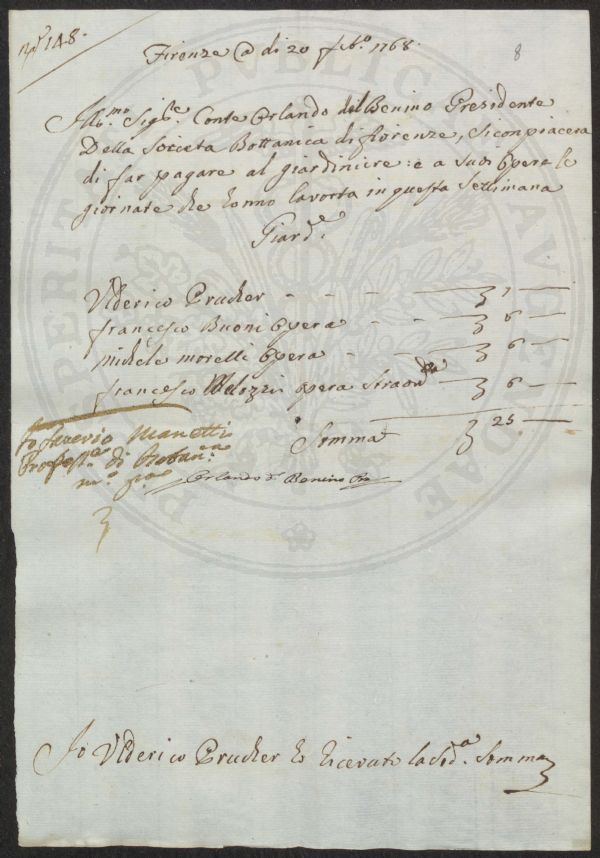 148.
Firenze @ di 20 feb.o 1768.
8
Ill.mo Sig.re Conte Orlando del Benino Presidente
Della Societa Bottanica di florenze, Si conpiacera
di far pagare al giardiniere: e a suoi Opere le
giornate che hanno lavorta in questa Settimana
Giard.e
Vlderico Prucher - - - 7 —
francesco Buoni Opera - - 6 —
michele morelli Opera - 6 —
francesco Melozzi opera Straord.ria 6 —
Somma 25 —
Io Saverio Manetti
Profess.e di Botan.ca
m.o p.a
Orlando d. Benino Pre
Io Vlderico Prucher ho Ricevuto la Sod.a Somma